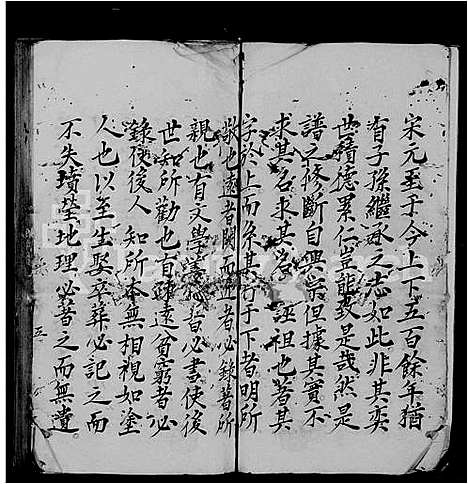 宋元至于今上下五百餘年猶
有子孫繼承之志如此非其奕
世積德累仁豈能致是哉然是
譜之修斷自興宗但據其實不
求其名求其名誣祖也著其
字於上而系其行于下者明所
敬也遠者闕而近者必錄著所
親也有文學善惡者必書使後
世知所勸也有疎遠貧窮者必
錄使後人知所本無相視如塗
人也以至生娶卒葬必記之而
不失墳塋地理必著之而無遺
五